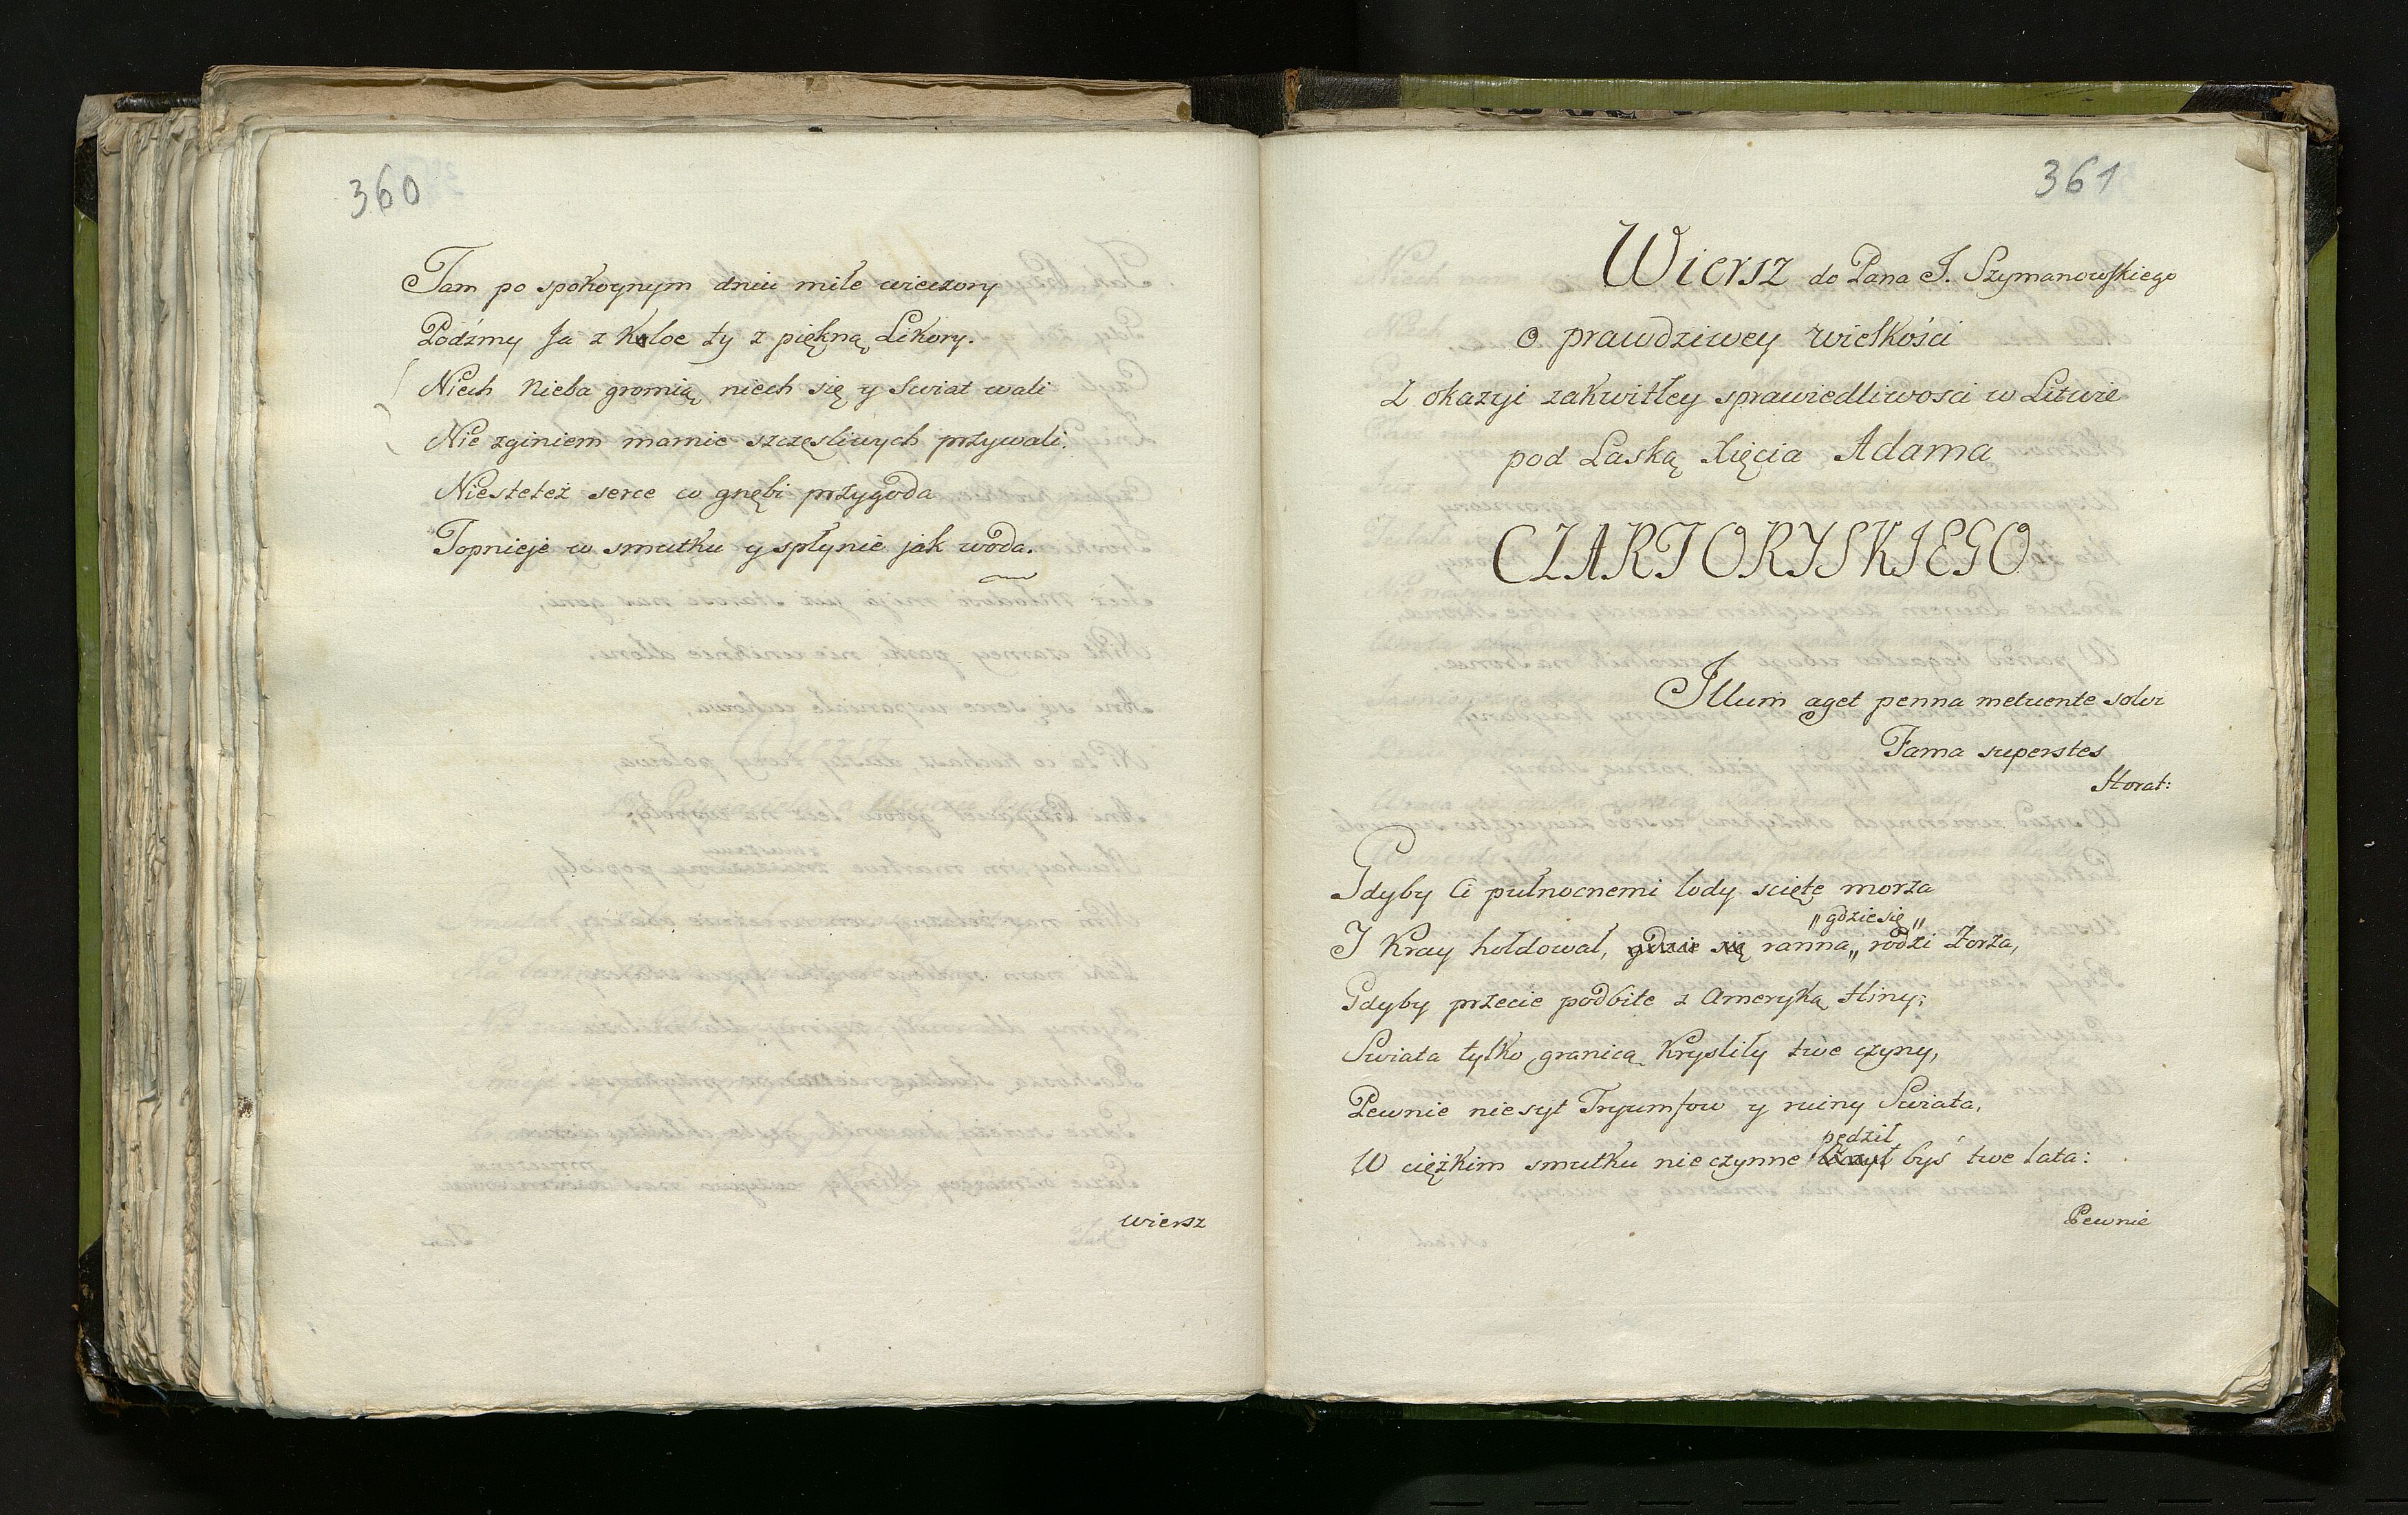 360
Tam po spokoynym dniu miłe wieczory
Podźmy Ja z Kloe ty z piękną Likory.
Niech Nieba gromią niech się y Swiat wali
Nie zginiem marnie szczęsliwych przywali.
Niesteteż serce co gnębi przygoda
Topnieje w smutku y spłynie jak woda.
wiersz
361
Wiersz do Pana J. Szymanowskiego
o prawdziwey wielkości
Z okazyi zakwitłey sprawiedliwosci w Litwie
pod Laską Xięcia Adama
CZARTORYSKIEGO
Illum aget penna metuente solvi
Fama superstes
Horat:
Gdyby Ci pułnocnemi lody scięte morza
„gdzie się„
I Kray hołdował, gdzie się ranna„ rodzi Zorza,
Gdyby przecie podbite z Ameryką Hiny;
Swiata tylko granicą Krysliły twe czyny,
Pewnie niesyt Tryumfow y ruiny Swiata,
pędził
W ciężkim smutku nieczynne byś twe lata:
Pewnie